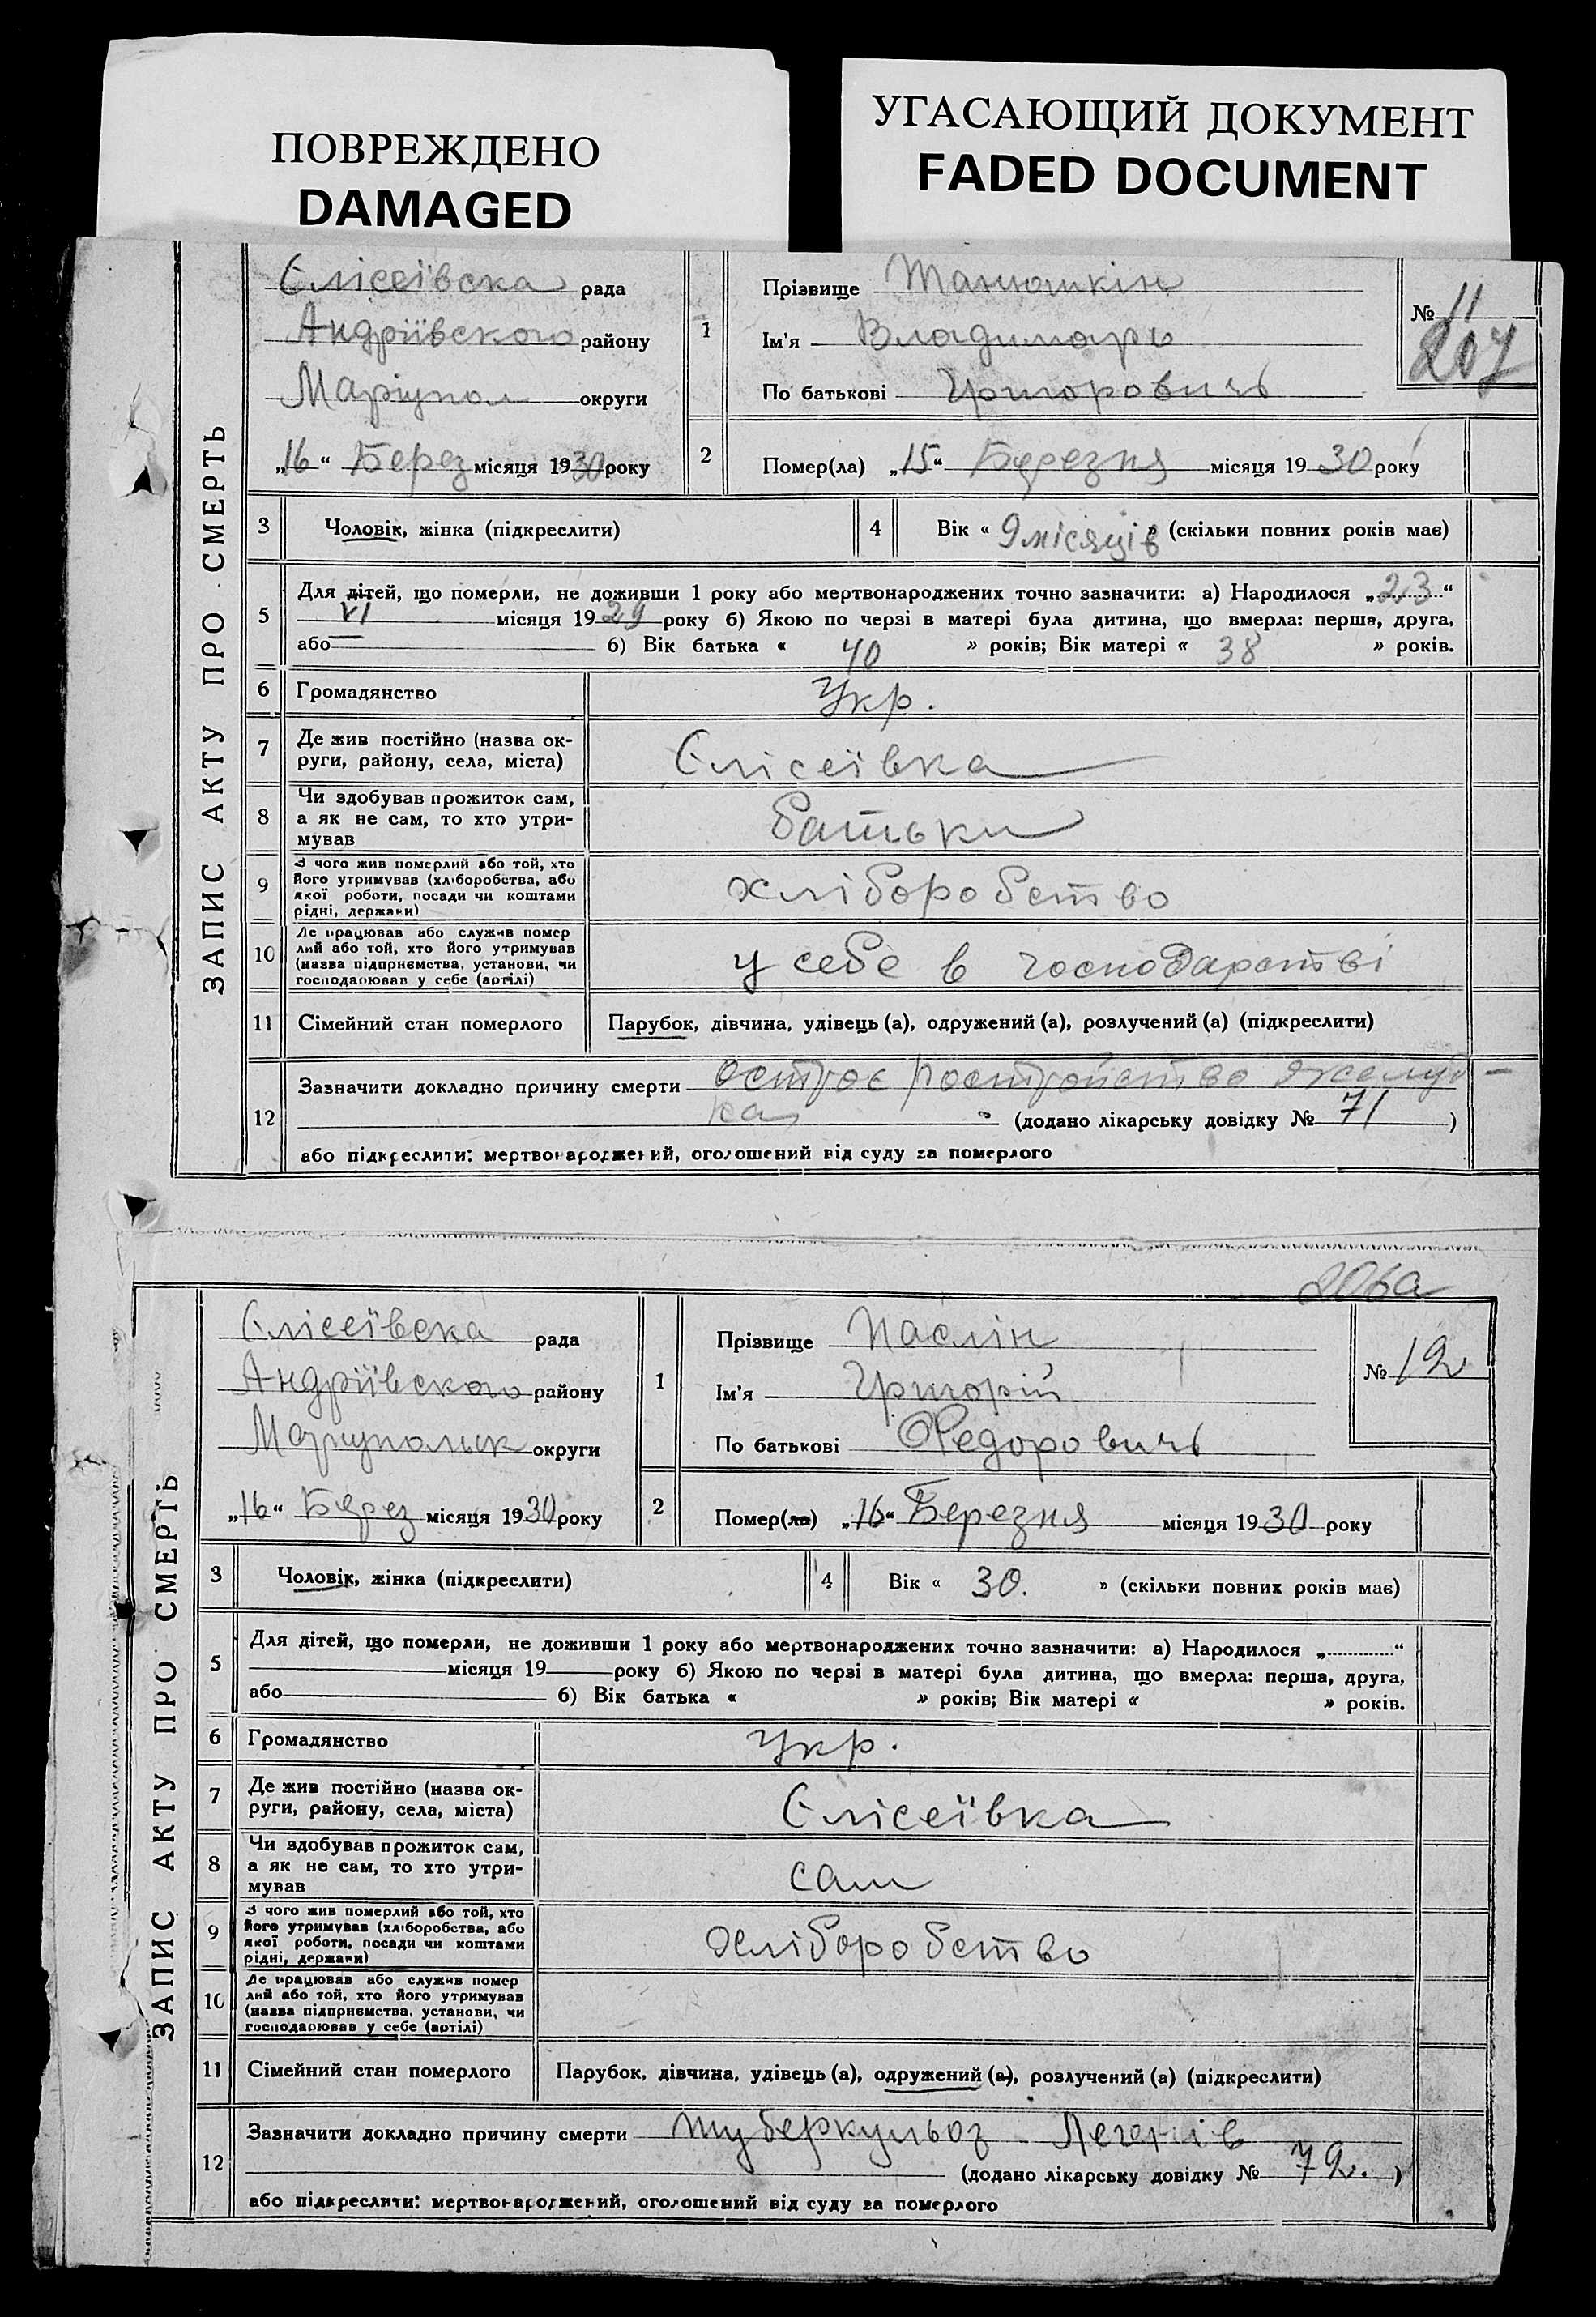 ПОВРЕЖДЕНО
DAMAGED
УГАСАЮЩИЙ ДОКУМЕНТ
FADED DOCUMENT
ЗАПИС АКТУ ПРО СМЕРТЬ
Єлісеївска рада
Андріївского району
Маріупол округи
„16“ Берез місяця 1930 року
1 Прізвище Танюшкін
Ім'я Владимаръ
По батькові Григоровичъ
№ 11
207
2 Помер(ла) „15“ Березня місяця 1930 року
3 Чоловік, жінка (підкреслити)
4 Вік « 9 місяців » (скільки повних років має)
5 Для дітей, що померли, не доживши 1 року або мертвонароджених точно зазначити: а) Народилося „23“
VI місяця 1929 року б) Якою по черзі в матері була дитина, що вмерла: перша, друга,
або б) Вік батька « 40 » років; Вік матері « 38 » років.
6 Громадянство Укр.
7 Де жив постійно (назва ок-
руги, району, села, міста) Єлісеївка
8 Чи здобував прожиток сам,
а як не сам, то хто утри-
мував батьки
9 З чого жив померлий або той, хто
його утримував (хліборобства, або
якої роботи, посади чи коштами
рідні, держави) хліборобство
10 Де працював або служив помер
лий або той, хто його утримував
(назва підприємства, установи, чи
господарював у себе (артілі) у себе в господарстві
11 Сімейний стан померлого Парубок, дівчина, удівець (а), одружений (а), розлучений (а) (підкреслити)
12 Зазначити докладно причину смерти острое ростройство желуд-
ка (додано лікарську довідку № 71)
або підкреслити: мертвонароджений, оголошений від суду за померлого
206а
ЗАПИС АКТУ ПРО СМЕРТЬ
Єлісеївска рада
Андріївского району
Мариупольк округи
„16“ Берез місяця 1930 року
1 Прізвище Паслін
Ім'я Григорій
По батькові Федоровичъ
№ 12
2 Помер(ла) „16“ Березня місяця 1930 року
3 Чоловік, жінка (підкреслити)
4 Вік « 30. » (скільки повних років має)
5 Для дітей, що померли, не доживши 1 року або мертвонароджених точно зазначити: а) Народилося „ “
місяця 19 року б) Якою по черзі в матері була дитина, що вмерла: перша, друга,
або б) Вік батька « » років; Вік матері « » років.
6 Громадянство Укр.
7 Де жив постійно (назва ок-
руги, району, села, міста) Єлісеївка
8 Чи здобував прожиток сам,
а як не сам, то хто утри-
мував сам
9 З чого жив померлий або той, хто
його утримував (хліборобства, або
якої роботи, посади чи коштами
рідні, держави) хліборобство
10 Де працював або служив помер
лий або той, хто його утримував
(назва підприємства, установи, чи
господарював у себе (артілі)
11 Сімейний стан померлого Парубок, дівчина, удівець (а), одружений (а), розлучений (а) (підкреслити)
12 Зазначити докладно причину смерти туберкульоз Легенів
(додано лікарську довідку № 72.)
або підкреслити: мертвонароджений, оголошений від суду за померлого